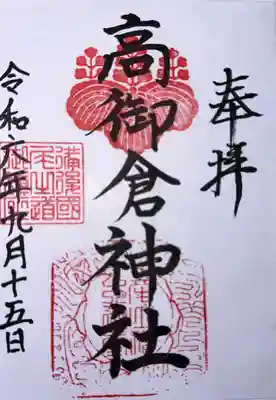 奉拝
高御倉神社
備後國
毛生道
令和六年九月十五日